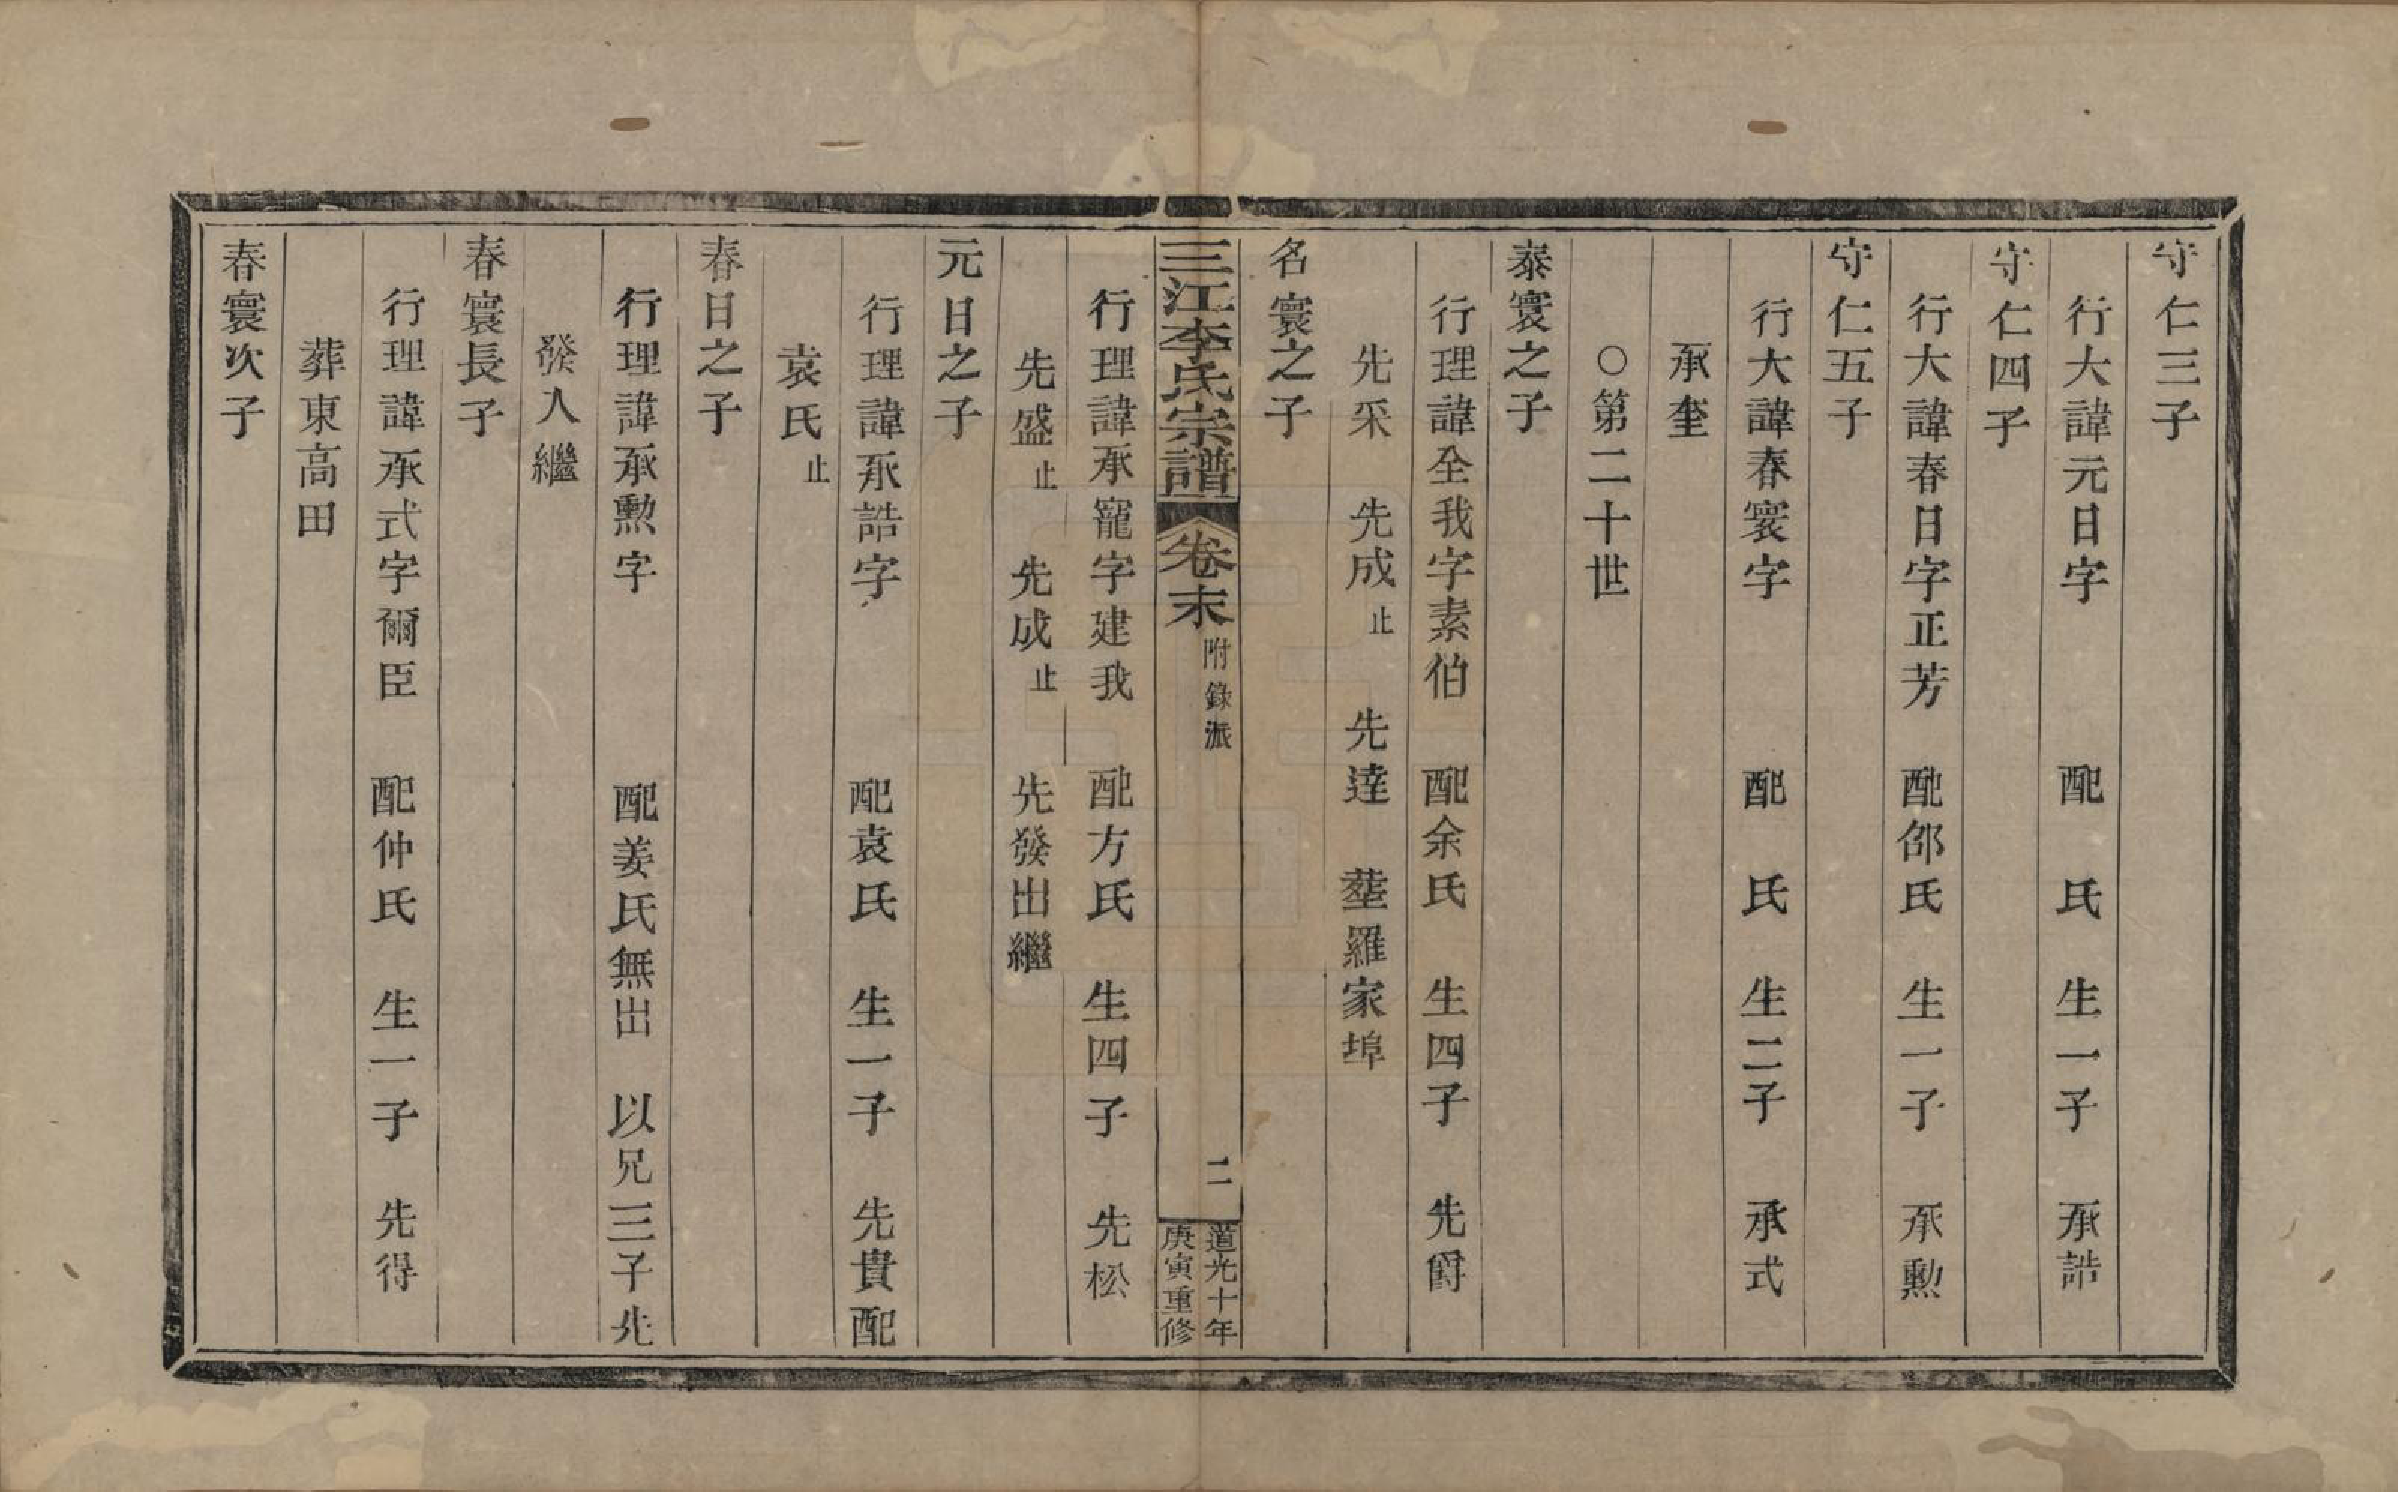 守仁三子
行大諱元日字　配　氏　生一子　承誥
守仁四子
行大諱春日字正芳　配邵氏　生一子　承勲
守仁五子
行大諱春寰字　配　氏　生二子　承式
承奎
○第二十世
泰寰之子
行理諱全我字素伯　配余氏　生四子　先爵
先采　先成止　先達　塟羅家埠
名寰之子
三江李氏宗譜　卷末　附錄派　二　道光十年
庚寅重修
行理諱承寵字建我　配方氏　生四子　先松
先盛止　先成止　先發出繼
元日之子
行理諱承誥字　配袁氏　生一子　先貴配
袁氏止
春日之子
行理諱承勲字　配姜氏無出　以兄三子先
發入繼
春寰長子
行理諱承式字爾臣　配仲氏　生一子　先得
葬東高田
春寰次子